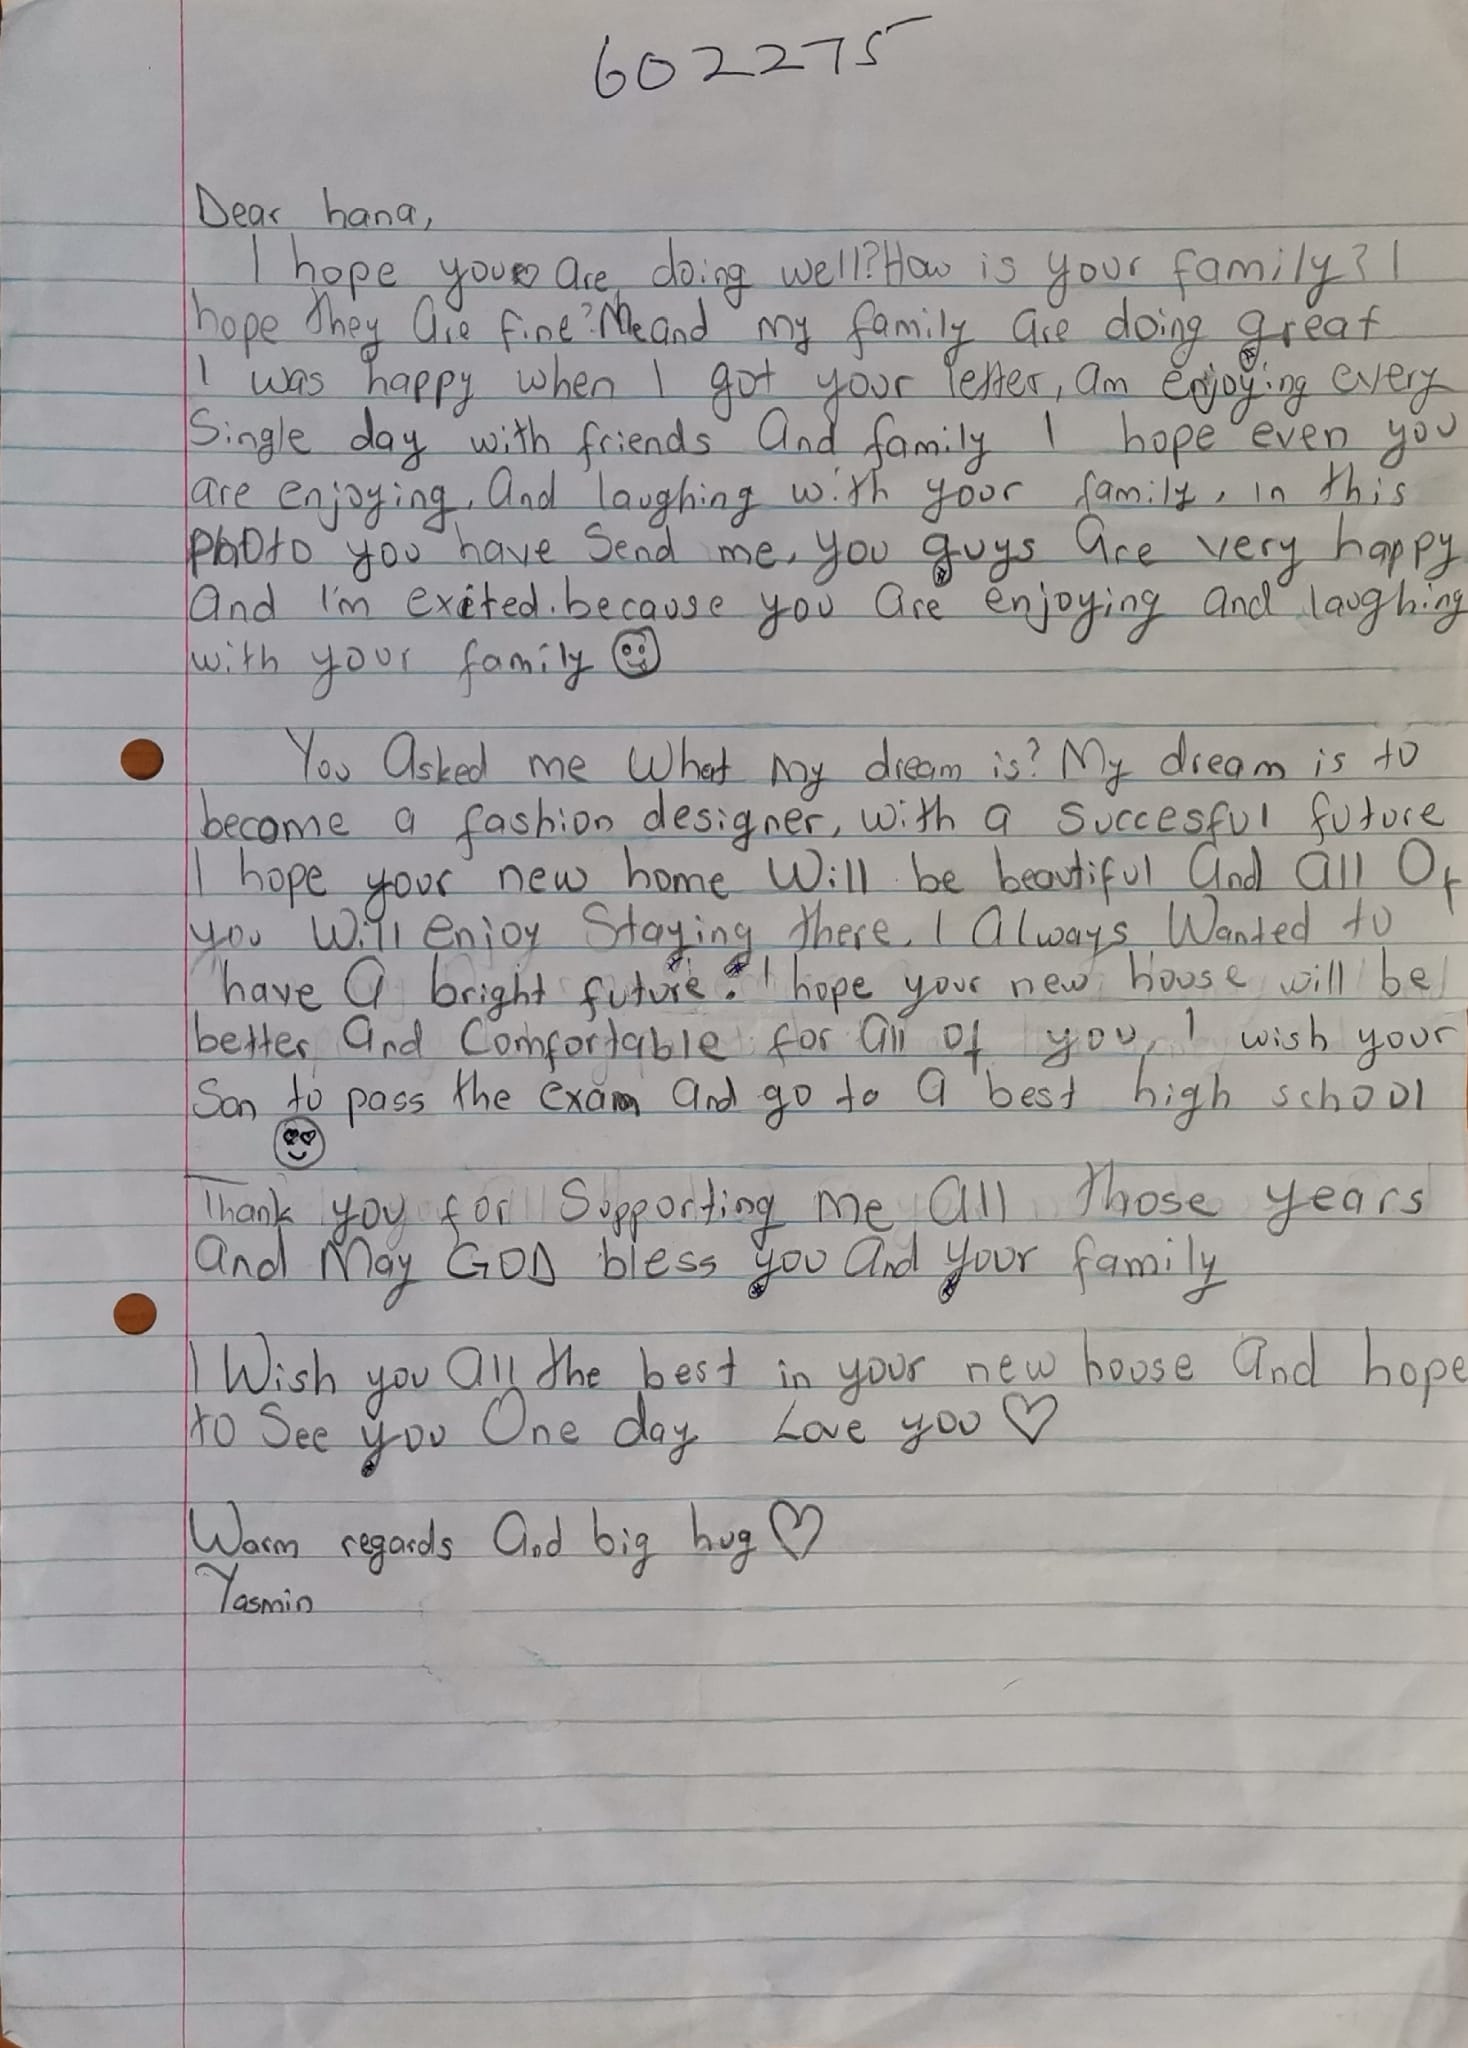 602275
Dear hana,
I hope you are doing well? How is your family? I
hope they are fine? Me and my family are doing great
I was happy when I got your letter, am enjoying every
Single day with friends And family I hope even you
are enjoying, And laughing with your family, in this
photo you have Send me, you guys Are very happy
And I'm exited. because you are enjoying and laughing
with your family
You Asked me What my dream is? My dream is to
become a fashion designer, with a succesful future
I hope your new home Will be beautiful And all Of
you Will enjoy Staying there. I Always Wanted to
have A bright future. I hope your new house will be
better And Comfortable for all of you, I wish your
Son to pass the exam and go to A best high school
Thank you for Supporting me all those years
And May GOD bless you And your family
I Wish you All the best in your new house And hope
to See you One day Love you
Warm regards And big hug
Yasmin